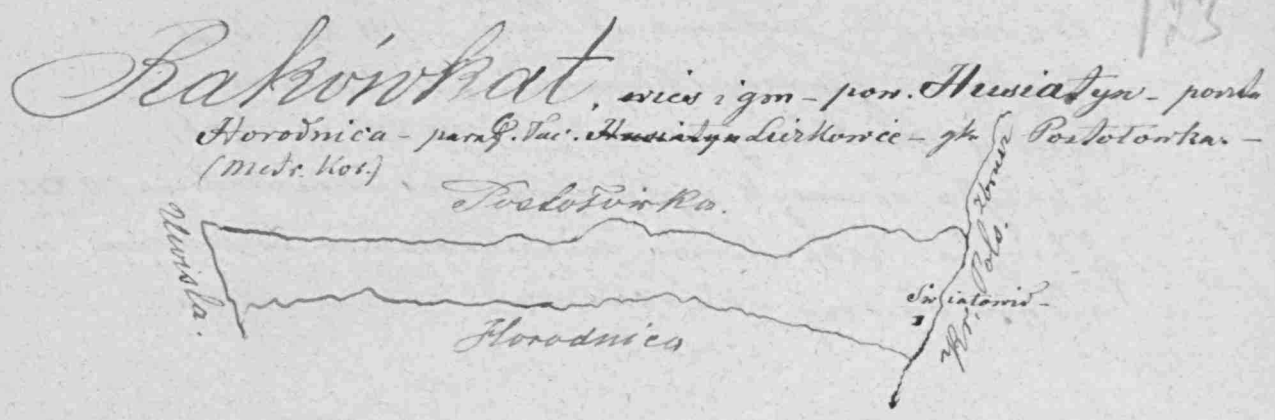 123
Rakówkąt, wieś i gm – pow. Husiatyn – poczta
Horodnica – paraf. łac. Husiatyn Liczkowce – gk. Postołówka. –
(Metr. Kos.)
Postołówka.
Uwisla.
Horodnica
Zbrucz
Kr. Pols.
Światowid –